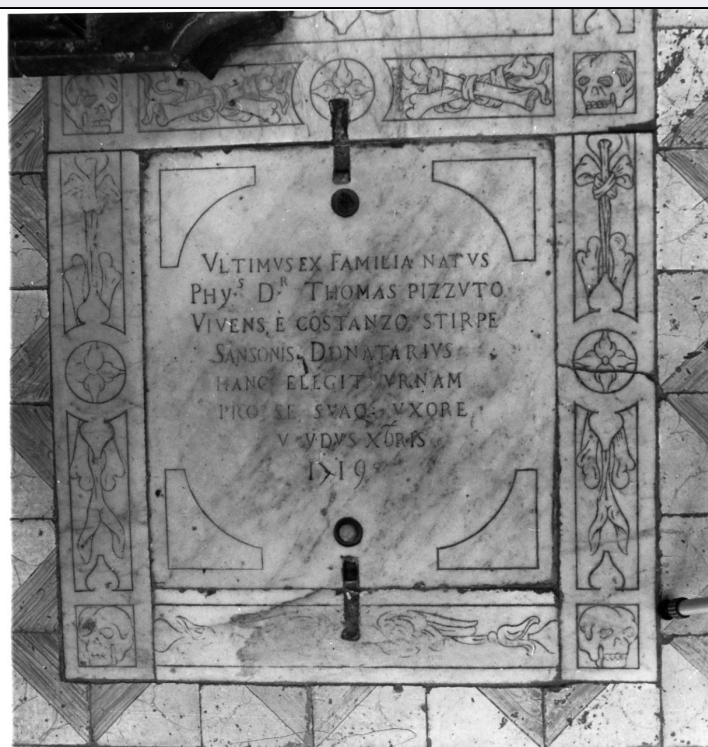 VLTIMVS EX FAMILIA NATVS
PHY.S D.R THOMAS PIZZVTO
VIVENS, E COSTANZO STIRPE
SANSONIS, DONATARIVS
HANC ELEGIT VRNAM
PRO SE SVAQ. VXORE
1719